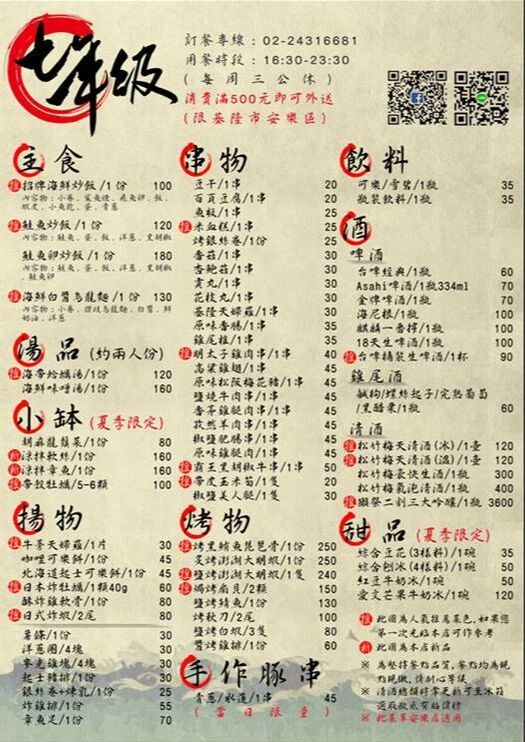 七年級
訂餐專線：02-24316681
用餐時段：16:30-23:30
(每周三公休)
消費滿500元即可外送
(限基隆市安樂區)
主食
推 招牌海鮮炒飯/1份 100
推 鮭魚炒飯/1份 120
內容物：鮭魚、蛋、飯、洋蔥、黑胡椒
鮭魚卵炒飯/1份 180
推 海鮮白醬烏龍麵/1份 130
湯品 (約兩人份)
推 海帶蛤蠣湯/1份 120
海鮮味噌湯/1份 160
小缽 (夏季限定)
胡麻龍鬚菜/1份 80
新 涼拌軟絲/1份 160
新 涼拌章魚/1份 160
推 帶殼牡蠣/5-6顆 100
揚物
推 牛蒡天婦羅/1片 30
咖哩可樂餅/1份 45
北海道起士可樂餅/1份 45
推 日本炸牡蠣/1顆40g 60
酥炸雞軟骨/1份 80
推 日式炸蝦/2尾 80
薯條/1份 30
洋蔥圈/4塊 30
麥克雞塊/4塊 30
起士豬排/1份 50
銀絲卷+煉乳/1份 25
炸雞排/1份 55
章魚足/1份 70
串物
豆干/1串 20
百頁豆腐/1串 20
魚板/1串 20
推 米血糕/1串 20
烤銀絲卷/1份 25
香菇/1串 30
杏鮑菇/1串 30
貢丸/1串 30
花枝丸/1串 30
基隆天婦羅/1串 30
原味香腸/1串 35
雞尾椎/1串 35
推 明太子雞肉串/1串 40
高粱雞翅/1串 45
原味松阪梅花豬/1串 45
鹽燒牛肉串/1串 45
香蒜雞腿肉串/1串 45
孜然羊肉串/1串 45
椒鹽肥腸串/1串 45
原味雞腿肉串/1串 45
推 霸王黑胡椒牛串/1串 50
推 帶皮玉米筍/1隻 20
椒鹽美人腿/1隻 30
烤物
推 烤黑鮪魚琵琶骨/1份 250
炙烤澎湖大明蝦/1份 250
鹽烤澎湖大明蝦/1隻 240
推 焗烤扇貝/2顆 150
鹽烤鯖魚/1份 130
烤秋刀/2尾 100
鹽烤白蝦/3隻 80
醬烤雞排/1份 60
手作豚串
青蔥/水蓮/1串 45
(當日限量)
飲料
可樂/雪碧/1瓶 35
瓶裝飲料/1瓶 35
酒
啤酒
台啤經典/1瓶 60
Asahi啤酒/1瓶334ml 70
金牌啤酒/1瓶 70
海尼根/1瓶 100
麒麟一番搾/1瓶 100
18天生啤酒/1瓶 100
推 台啤桶裝生啤酒/1杯 90
雞尾酒
鹹狗/螺絲起子/完熟葡萄
/黑醋栗/1瓶 60
清酒
推 松竹梅天清酒(冰)/1壺 120
推 松竹梅天清酒(溫)/1壺 120
松竹梅豪快生酒/1瓶 300
松竹梅氣泡清酒/1瓶 400
推 獺祭二割三大吟釀/1瓶 3600
甜品 (夏季限定)
綜合豆花(3樣料)/1碗 35
綜合刨冰(4樣料)/1碗 50
紅豆牛奶冰/1碗 50
愛文芒果牛奶冰/1碗 120
推 此圖為人氣推薦菜色，如果您
第一次光臨本店可作參考
新 此圖為本店新品
※ 為堅持餐點品質，餐點均為現
點現做，請耐心等候
※ 清酒總類時常更新可至冰箱
選取瓶底有貼價標
※ 此菜單安樂店適用